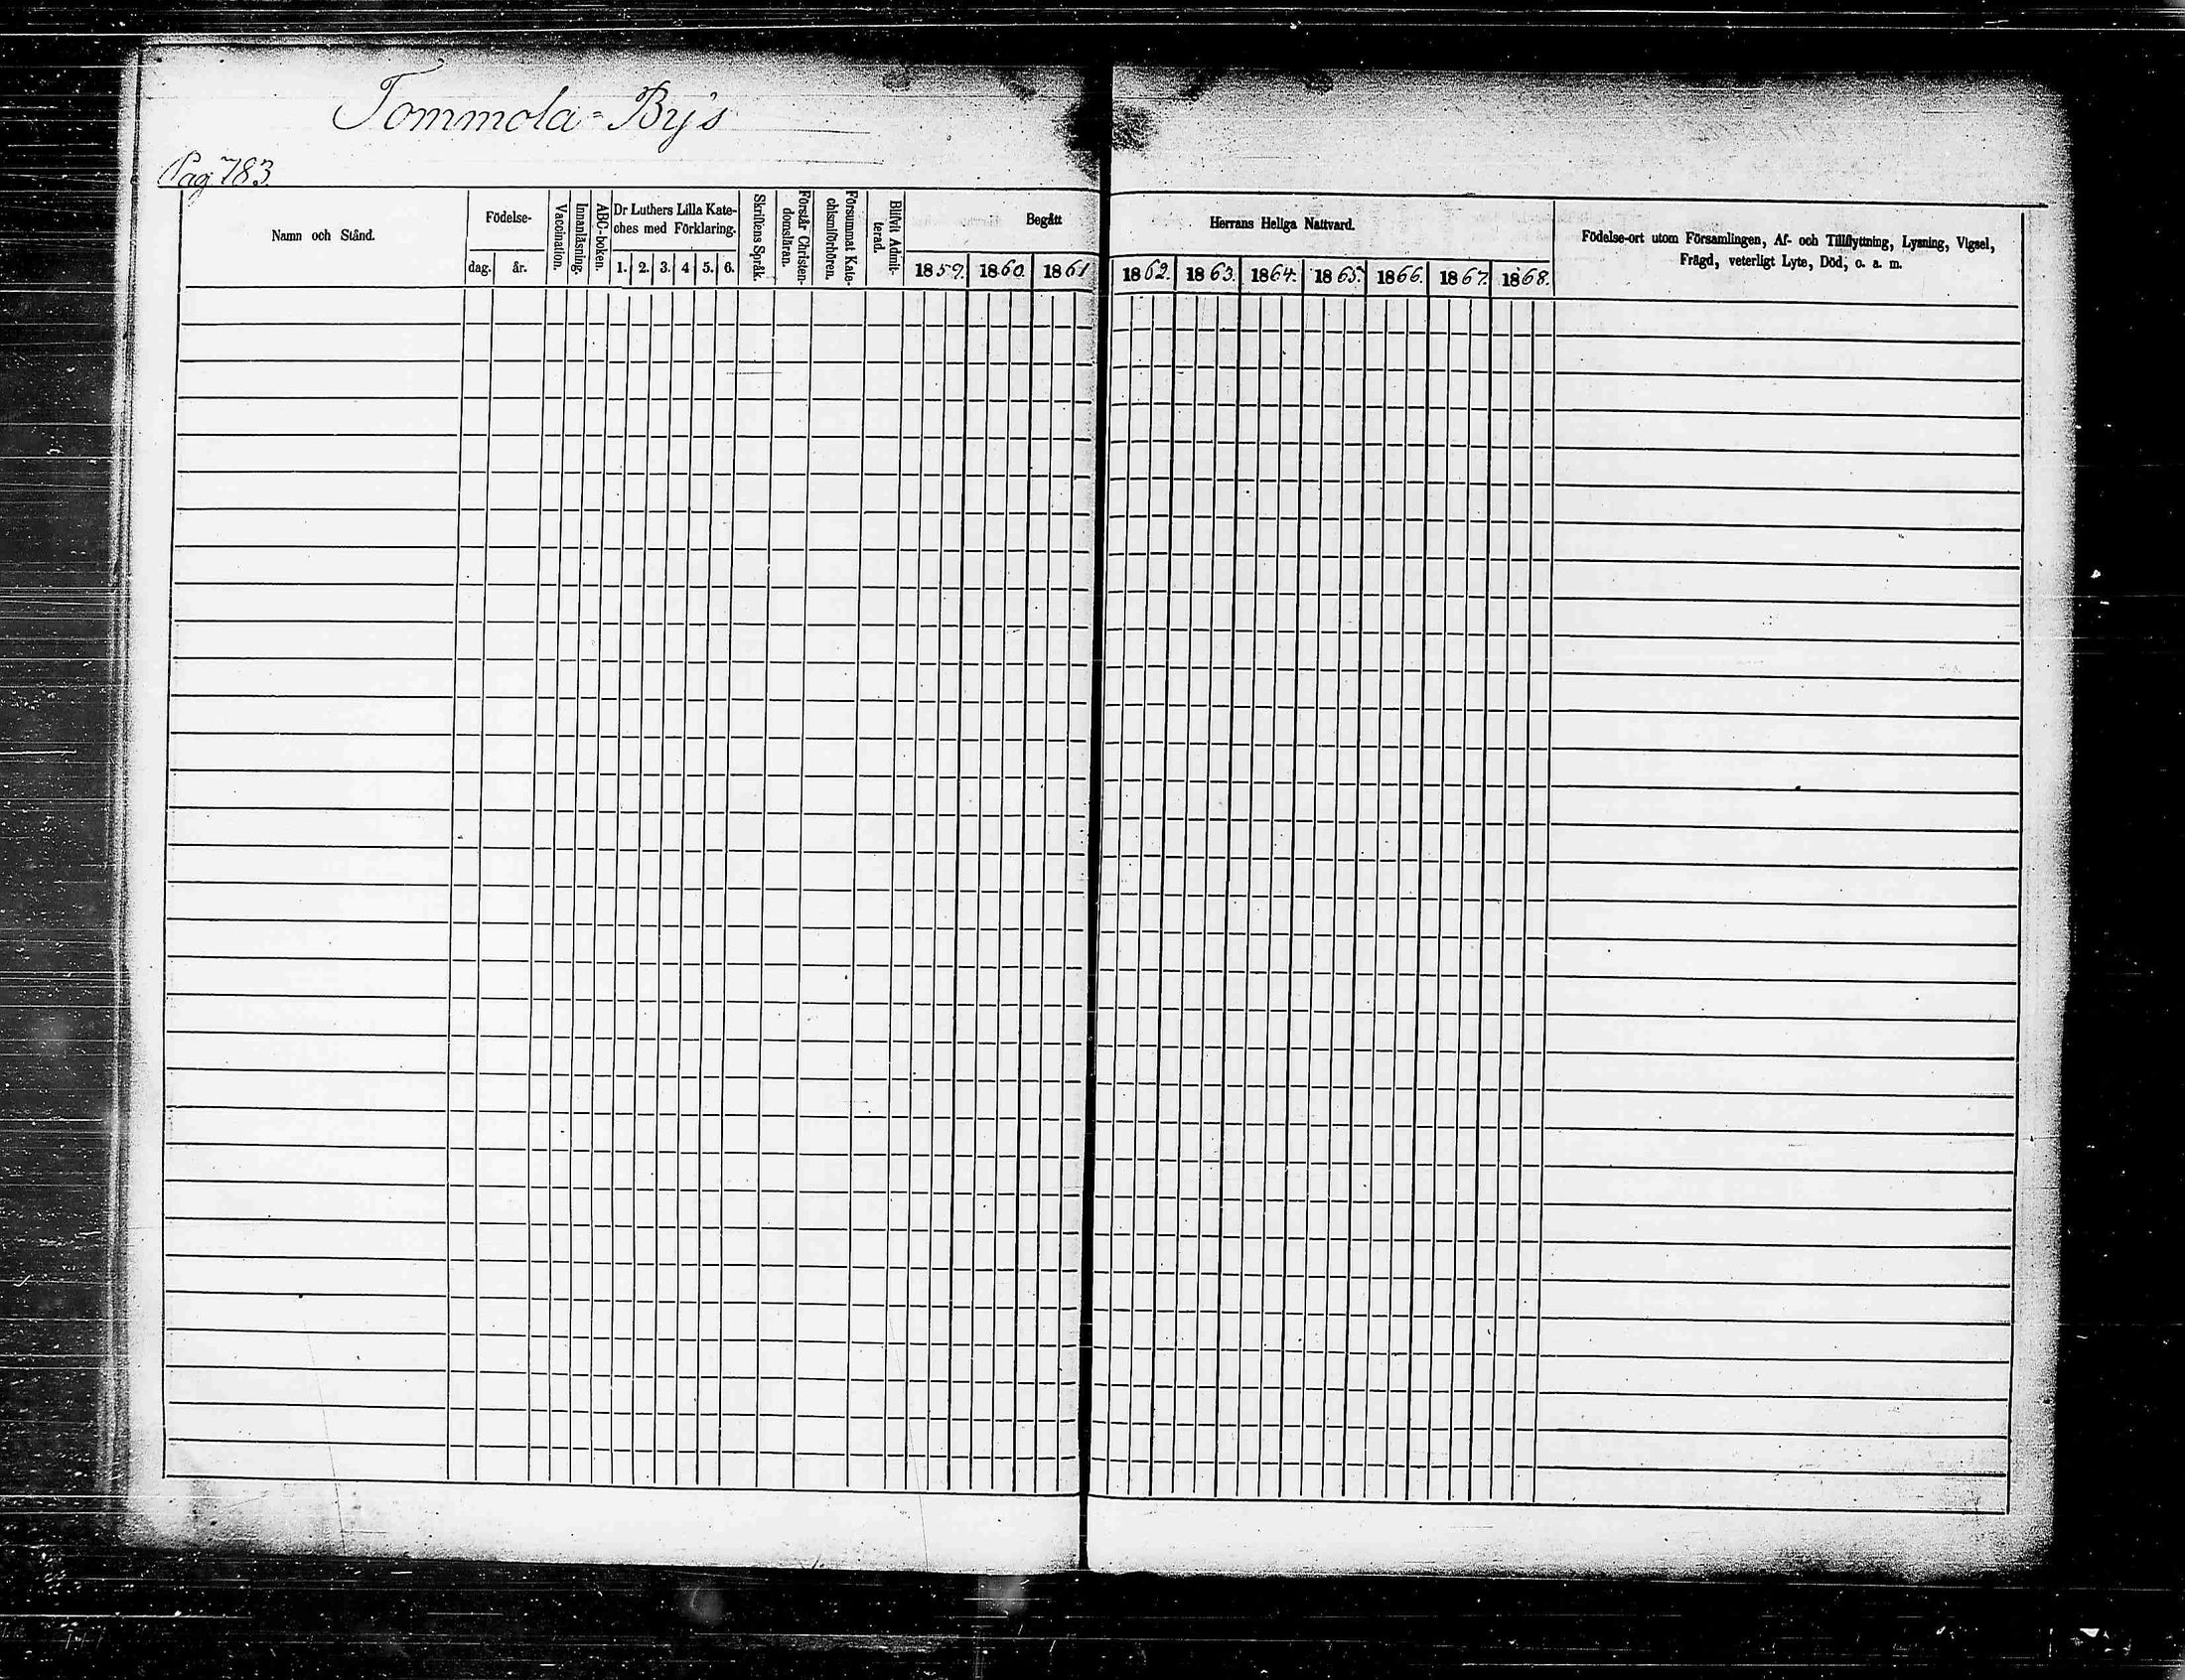 Tommola-By's
Pag 783.
Namn och Stånd.
Födelse-
dag.
år.
Vaccination.
Innanläsning.
ABC-boken.
Dr Luthers Lilla Kate-
ches med Förklaring.
1. 2. 3. 4 5. 6.
Skriftens Språk.
Förstår Christen-
domsläran.
Försummat Kate-
chismiförhören.
Blifvit Admit-
terad.
Begått
1859. 1860. 1861
Herrans Heliga Nattvard.
1862. 1863. 1864. 1865. 1866. 1867. 1868.
Födelse-ort utom Församlingen, Af- och Tillflyttning, Lysning, Vigsel,
Frägd, veterligt Lyte, Död, o. a. m.